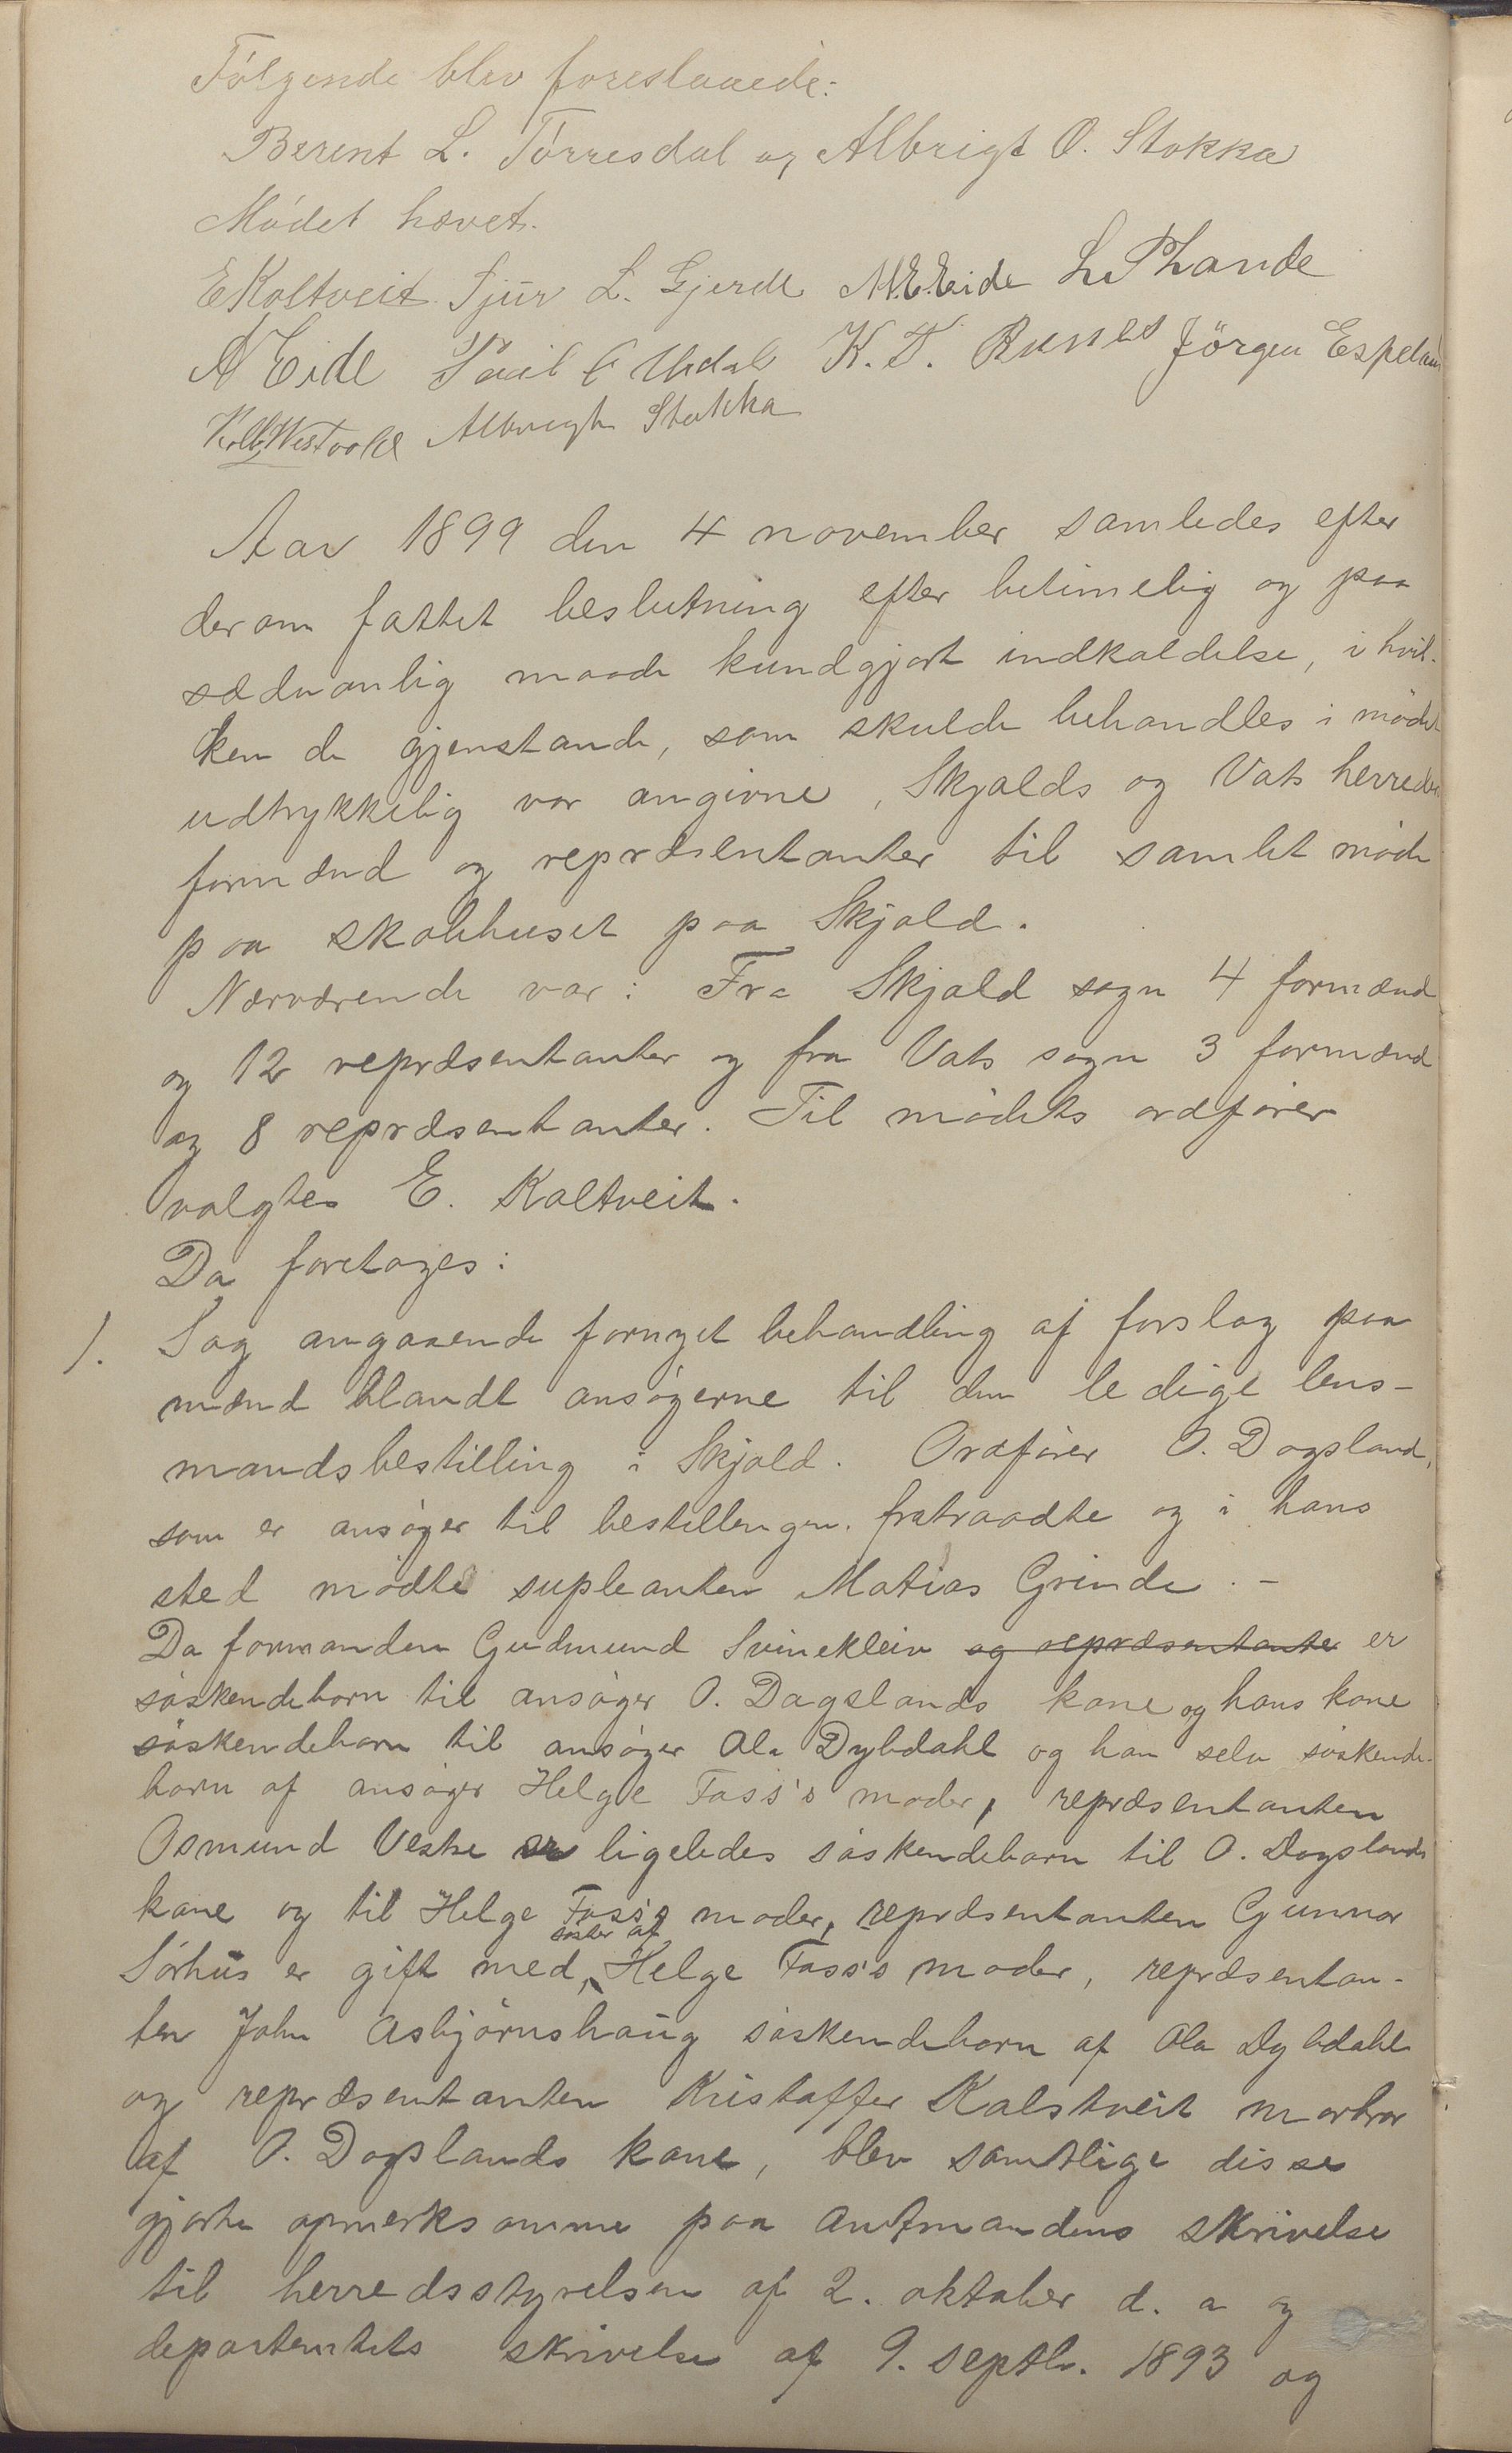 Følgende blev foreslaaede:
Berent L. Tørresdal og Albrigt O. Stokka
Mødet hævet.
E Kaltveit Sjur L. Gjerde M. E. Eide L. P Lande
A Eide K. T. Jörgen Espeland
Albregt Stokka
Aar 1899 den 4 november samledes efter
derom fattet beslutning efter betimelig og paa
sædvanlig maade kundgjort indkaldelse, i hvil-
ken de gjenstande, som skulde behandles i mødet
udtrykkelig var angivne, Skjolds og Vats herreders
formænd og repræsentanter til samlet møde
paa skolehuset paa Skjold.
Nærværende var: Fra Skjold sogn 4 formænd
og 12 repræsentanter og fra Vats sogn 3 formænd
og 8 repræsentanter. Til mødets ordfører
valgtes E. Kaltveit.
Da foretoges:
1. Sag angaaende fornyet behandling af forslag paa
mænd blandt ansøgerne til den ledige lens-
mandsbestilling i Skjold. Ordfører O. Dagsland,
som er ansøger til bestillingen. fratraadte og i hans
sted mødte supleanten Matias Grinde. -
Da formanden Gudmund Svinekleiv og repræsentante er
søskendebarn til ansøger O. Dagslands kone og hans kone
søskendebarn til ansøger Ola Dybdahl og han selv søskende-
barn af ansøger Helge Foss's moder, repræsentanten
Osmund Vestre er ligeledes søskendebarn til O. Dagslands
kone og til Helge Foss's moder, repræsentanten Gunnar
Sørhus er gift med søster af Helge Foss's moder, repræsentan-
ten John Asbjørnshaug søskendebarn af Ola Dybdahl
og repræsentanten Kristoffer Kalstveit morbror
af O. Dagslands kone, blev samtlige disse
gjorte opmerksomme paa amtmandens skrivelse
til herredsstyrelsen af 2. oktober d. a og
departemtets skrivelse af 9. septb. 1893 og